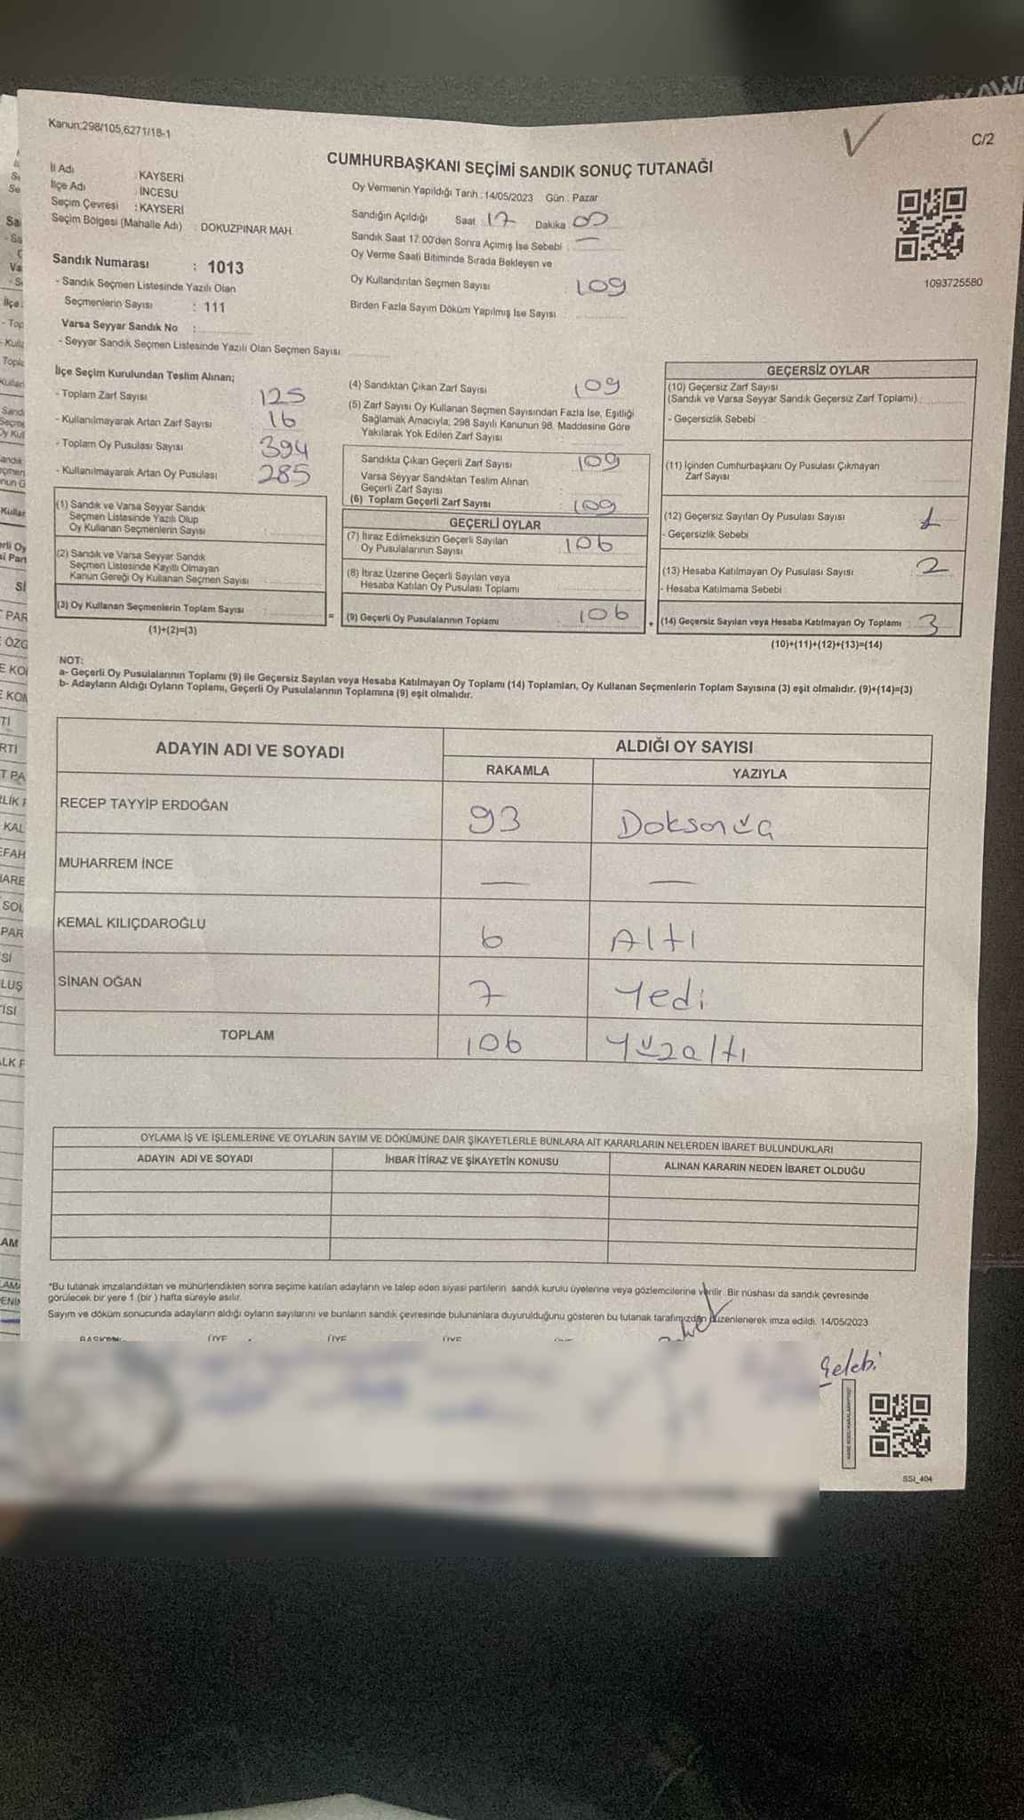 Kanun:298/105,6271/18-1
C/2
CUMHURBAŞKANI SEÇİMİ SANDIK SONUÇ TUTANAĞI
İl Adı : KAYSERİ
İlçe Adı : İNCESU
Seçim Çevresi : KAYSERİ
Seçim Bölgesi (Mahalle Adı) : DOKUZPINAR MAH.
Sandık Numarası : 1013
- Sandık Seçmen Listesinde Yazılı Olan
Seçmenlerin Sayısı : 111
Varsa Seyyar Sandık No :
- Seyyar Sandık Seçmen Listesinde Yazılı Olan Seçmen Sayısı
Oy Vermenin Yapıldığı Tarih : 14/05/2023 Gün : Pazar
Sandığın Açıldığı Saat : 17 Dakika : 00
Sandık Saat 17:00'den Sonra Açımış İse Sebebi : —
Oy Verme Saati Bitiminde Sırada Bekleyen ve
Oy Kullandırılan Seçmen Sayısı 109
Birden Fazla Sayım Döküm Yapılmış İse Sayısı
1093725580
İlçe Seçim Kurulundan Teslim Alınan;
- Toplam Zarf Sayısı 125
- Kullanılmayarak Artan Zarf Sayısı 16
- Toplam Oy Pusulası Sayısı 394
- Kullanılmayarak Artan Oy Pusulası 285
(1) Sandık ve Varsa Seyyar Sandık
Seçmen Listesinde Yazılı Olup
Oy Kullanan Seçmenlerin Sayısı
(2) Sandık ve Varsa Seyyar Sandık
Seçmen Listesinde Kayıtlı Olmayan
Kanun Gereği Oy Kullanan Seçmen Sayısı
(3) Oy Kullanan Seçmenlerin Toplam Sayısı
(1)+(2)=(3)
(4) Sandıktan Çıkan Zarf Sayısı 109
(5) Zarf Sayısı Oy Kullanan Seçmen Sayısından Fazla İse, Eşitliği
Sağlamak Amacıyla; 298 Sayılı Kanunun 98. Maddesine Göre
Yakılarak Yok Edilen Zarf Sayısı
Sandıkta Çıkan Geçerli Zarf Sayısı 109
Varsa Seyyar Sandıktan Teslim Alınan
Geçerli Zarf Sayısı
(6) Toplam Geçerli Zarf Sayısı 109
GEÇERLİ OYLAR
(7) İtiraz Edilmeksizin Geçerli Sayılan
Oy Pusulalarının Sayısı 106
(8) İtiraz Üzerine Geçerli Sayılan veya
Hesaba Katılan Oy Pusulası Toplamı
= (9) Geçerli Oy Pusulalarının Toplamı 106
GEÇERSİZ OYLAR
(10) Geçersiz Zarf Sayısı
(Sandık ve Varsa Seyyar Sandık Geçersiz Zarf Toplamı)
- Geçersizlik Sebebi :
(11) İçinden Cumhurbaşkanı Oy Pusulası Çıkmayan
Zarf Sayısı
(12) Geçersiz Sayılan Oy Pusulası Sayısı 1
- Geçersizlik Sebebi
(13) Hesaba Katılmayan Oy Pusulası Sayısı 2
- Hesaba Katılmama Sebebi
+ (14) Geçersiz Sayılan veya Hesaba Katılmayan Oy Toplamı : 3
(10)+(11)+(12)+(13)=(14)
NOT:
a- Geçerli Oy Pusulalarının Toplamı (9) ile Geçersiz Sayılan veya Hesaba Katılmayan Oy Toplamı (14) Toplamları, Oy Kullanan Seçmenlerin Toplam Sayısına (3) eşit olmalıdır. (9)+(14)=(3)
b- Adayların Aldığı Oyların Toplamı, Geçerli Oy Pusulalarının Toplamına (9) eşit olmalıdır.
ADAYIN ADI VE SOYADI ALDIĞI OY SAYISI
RAKAMLA YAZIYLA
RECEP TAYYİP ERDOĞAN 93 Doksanüç
MUHARREM İNCE — —
KEMAL KILIÇDAROĞLU 6 Altı
SİNAN OĞAN 7 Yedi
TOPLAM 106 Yüzaltı
OYLAMA İŞ VE İŞLEMLERİNE VE OYLARIN SAYIM VE DÖKÜMÜNE DAİR ŞİKAYETLERLE BUNLARA AİT KARARLARIN NELERDEN İBARET BULUNDUKLARI
ADAYIN ADI VE SOYADI İHBAR İTİRAZ VE ŞİKAYETİN KONUSU ALINAN KARARIN NEDEN İBARET OLDUĞU
*Bu tutanak imzalandıktan ve mühürlendikten sonra seçime katılan adayların ve talep eden siyasi partilerin sandık kurulu üyelerine veya gözlemcilerine verilir. Bir nüshası da sandık çevresinde
görülecek bir yere 1 (bir) hafta süreyle asılır.
Sayım ve döküm sonucunda adayların aldığı oyların sayılarını ve bunların sandık çevresinde bulunanlara duyurulduğunu gösteren bu tutanak tarafımızdan düzenlenerek imza edildi. 14/05/2023
BAŞKAN ÜYE ÜYE ÜYE
Çelebi
SSI_404